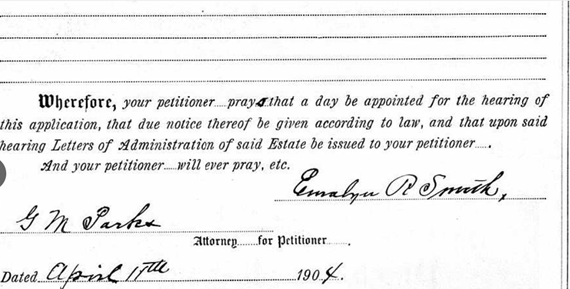 Wherefore, your petitioner prays that a day be appointed for the hearing of
this application, that due notice thereof be given according to law, and that upon said
hearing Letters of Administration of said Estate be issued to your petitioner.
And your petitioner will ever pray, etc.
Emalyn R Smith,
G M Parks
Attorney for Petitioner.
Dated April 11th 1904.